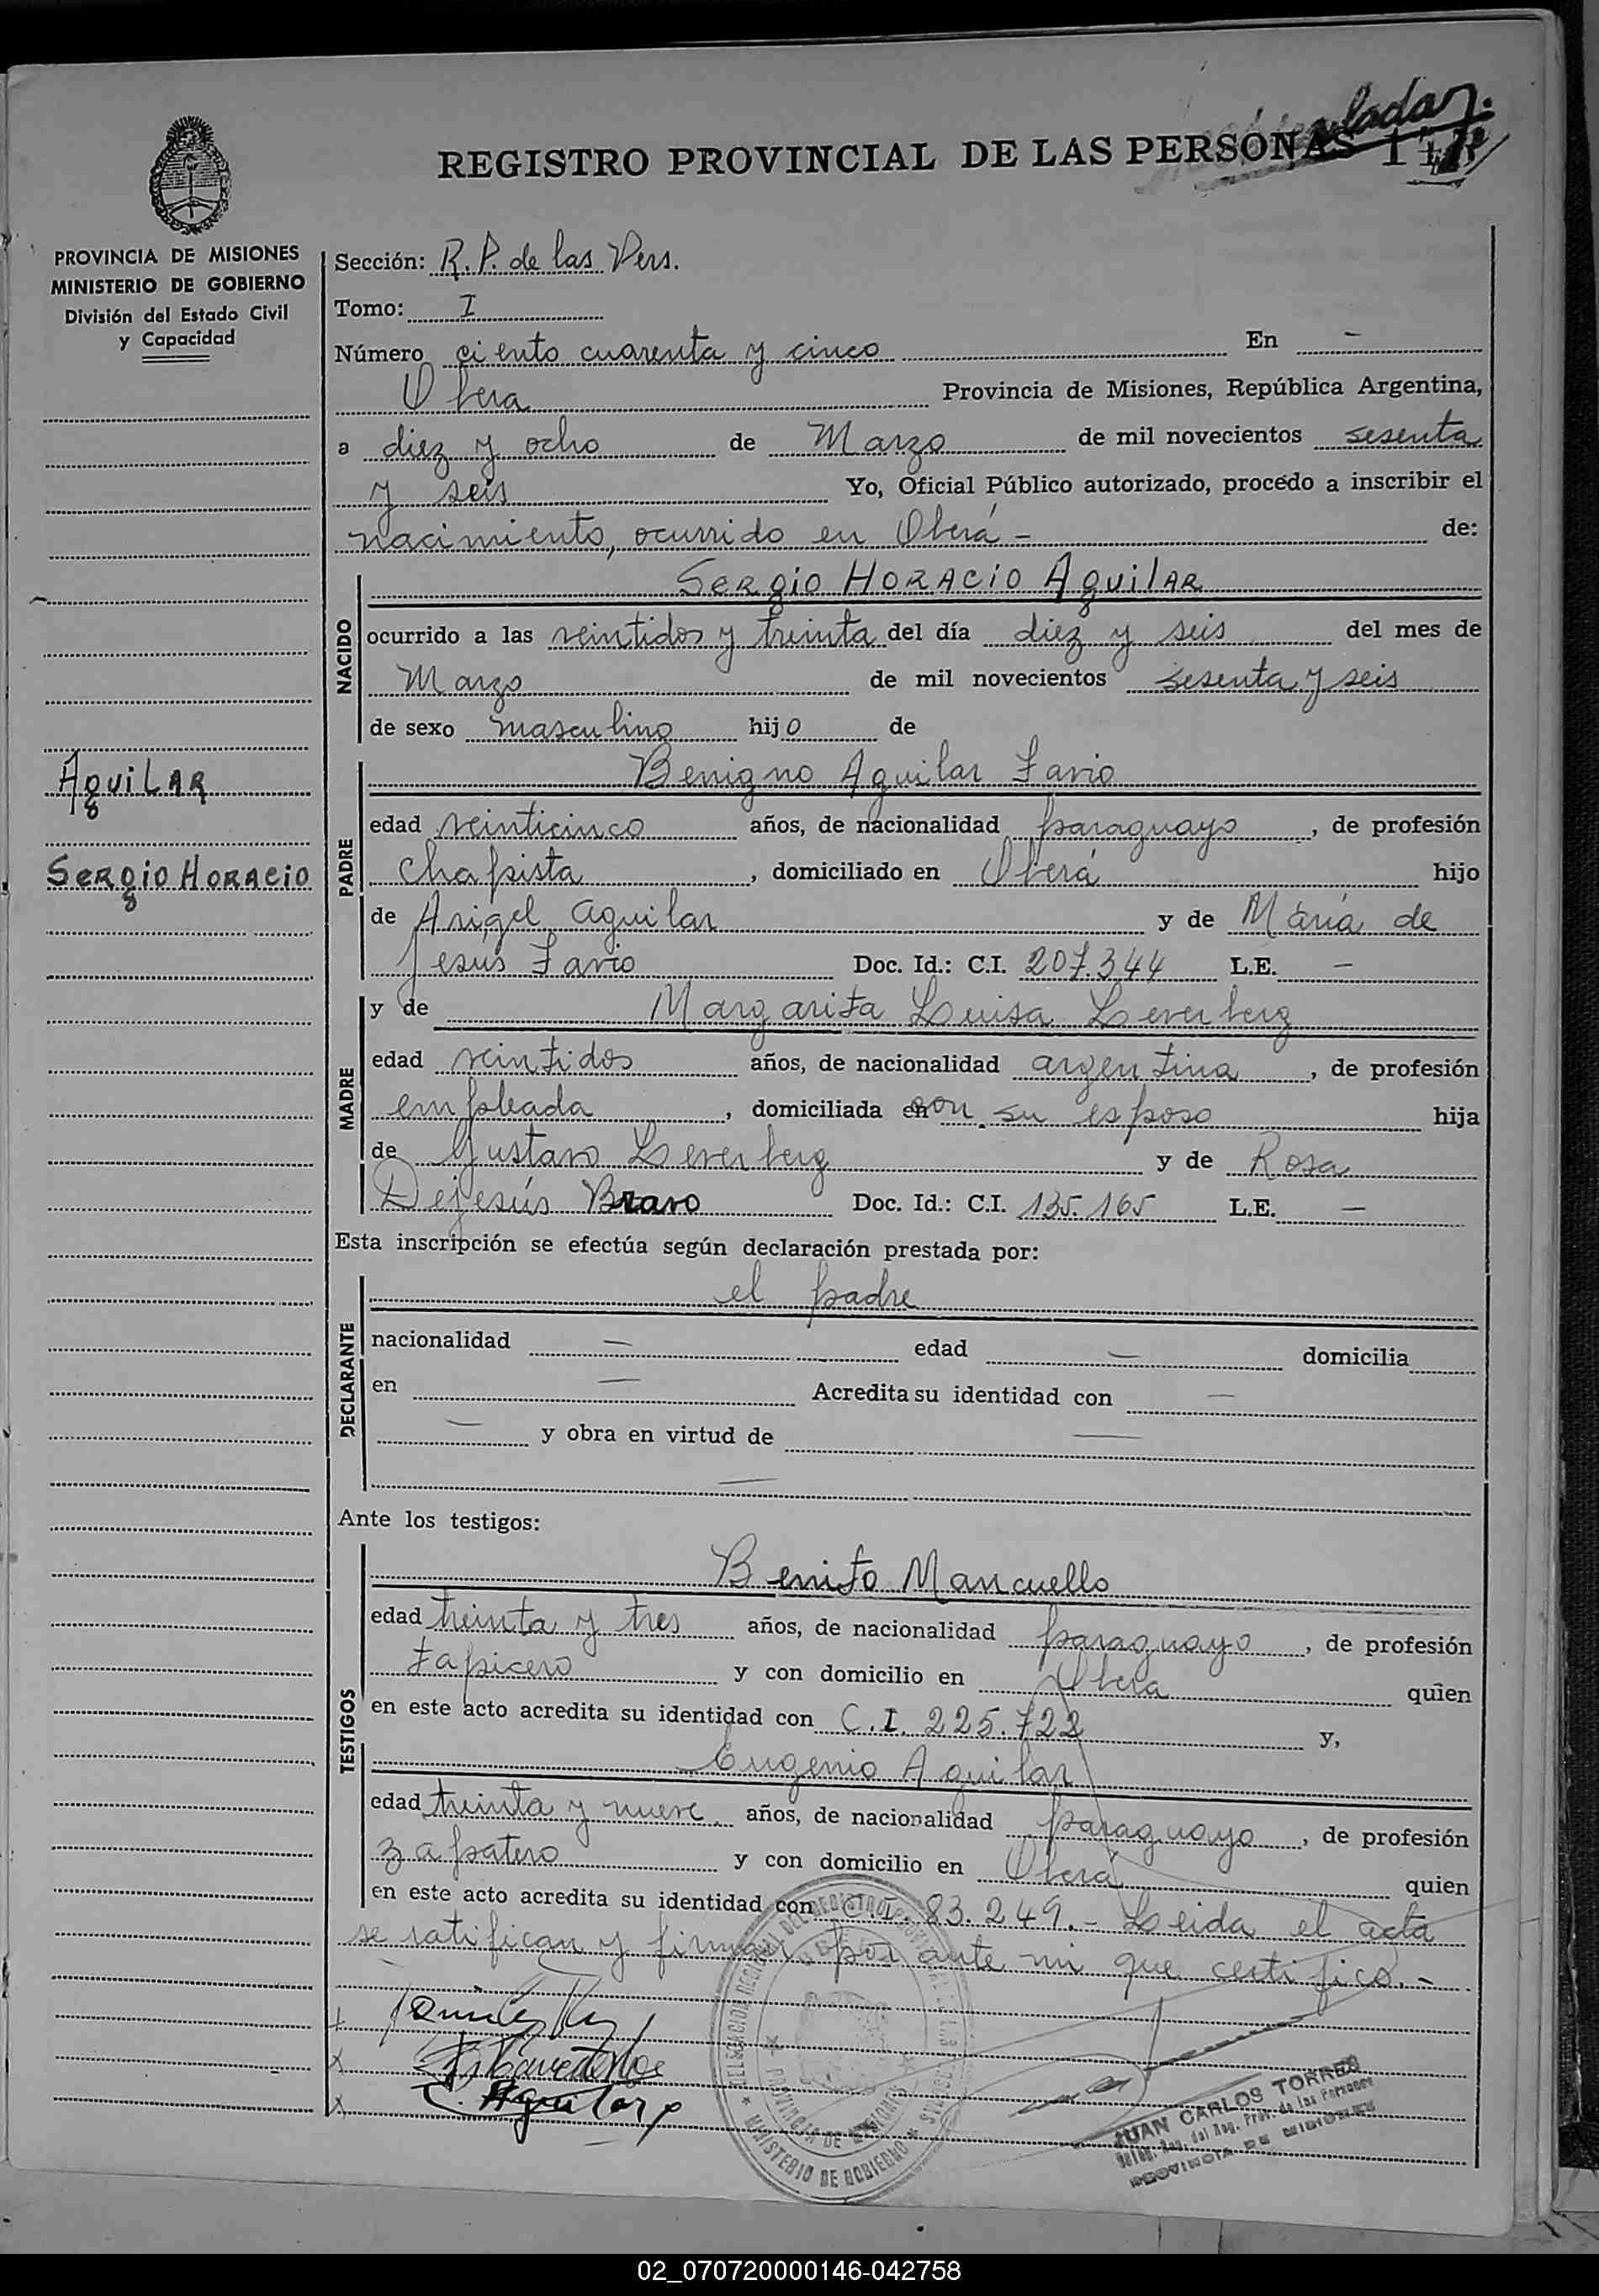 REGISTRO PROVINCIAL DE LAS PERSONAS
PROVINCIA DE MISIONES
MINISTERIO DE GOBIERNO
División del Estado Civil
y Capacidad
Aguilar
Sergio Horacio
Sección: R. P. de las Pers.
Tomo: I
Número ciento cuarenta y cinco En -
Obera Provincia de Misiones, República Argentina,
a diez y ocho de Marzo de mil novecientos sesenta
y seis Yo, Oficial Público autorizado, procedo a inscribir el
nacimiento, ocurrido en Oberá - de:
NACIDO
Sergio Horacio Aguilar
ocurrido a las veintidos y treinta del día diez y seis del mes de
Marzo de mil novecientos sesenta y seis
de sexo masculino hijo de
PADRE
Benigno Aguilar Fario
edad veinticinco años, de nacionalidad paraguayo, de profesión
Chapista, domiciliado en Oberá hijo
de Angel Aguilar y de María de
Jesús Fario Doc. Id.: C.I. 207.344 L.E. -
MADRE
y de Margarita Luisa Leverberg
edad veintidos años, de nacionalidad argentina, de profesión
empleada, domiciliada en con su esposo hija
de Gustavo Leverberg y de Rosa
Dejesús Bravo Doc. Id.: C.I. 135.165 L.E. -
Esta inscripción se efectúa según declaración prestada por:
DECLARANTE
el padre
nacionalidad - edad - domicilia
en - Acredita su identidad con -
- y obra en virtud de -
-
Ante los testigos:
TESTIGOS
Benito Mancuello
edad treinta y tres años, de nacionalidad paraguayo, de profesión
tapicero y con domicilio en Obera quien
en este acto acredita su identidad con C.I. 225.722 y,
Eugenio Aguilar
edad treinta y nueve años, de nacionalidad paraguayo, de profesión
zapatero y con domicilio en Oberá quien
en este acto acredita su identidad con C.I. 83.249.- Leida el acta
se ratifican y firman por ante mi que certifico.-
Aguilar
JUAN CARLOS TORRES
PROVINCIA DE MISIONES
MINISTERIO DE GOBIERNO
PROVINCIA DE MISIONES
02_070720000146-042758